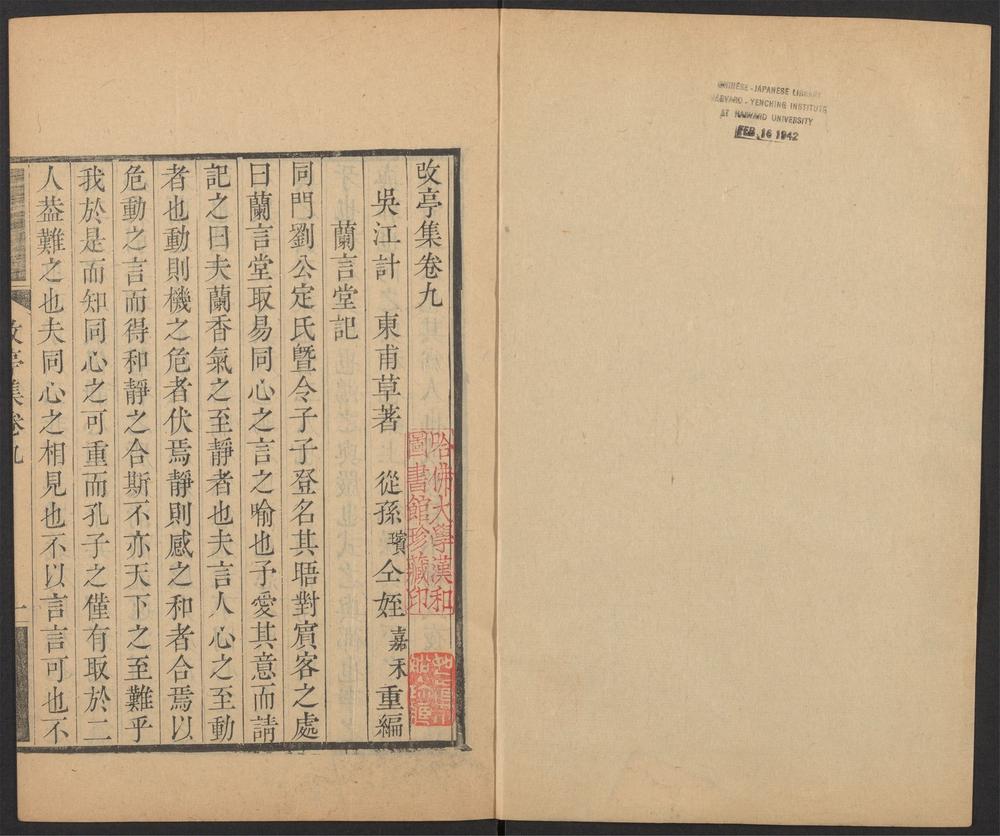 CHINESE-JAPANESE LIBRARY
HARVARD-YENCHING INSTITUTE
AT HARVARD UNIVERSITY
FEB 16 1942
改亭集卷九
吳江計 東甫草著 從孫璸仝姪嘉禾重編
蘭言堂記
同門劉公定氏暨令子子登名其晤對賓客之處
曰蘭言堂取易同心之言之喻也予愛其意而請
記之曰夫蘭香氣之至靜者也夫言人心之至動
者也動則機之危者伏焉靜則感之和者合焉以
危動之言而得和靜之合斯不亦天下之至難乎
我於是而知同心之可重而孔子之僅有取於二
人葢難之也夫同心之相見也不以言言可也不
改亭集卷九
一
哈佛大學漢和
圖書館珍藏印